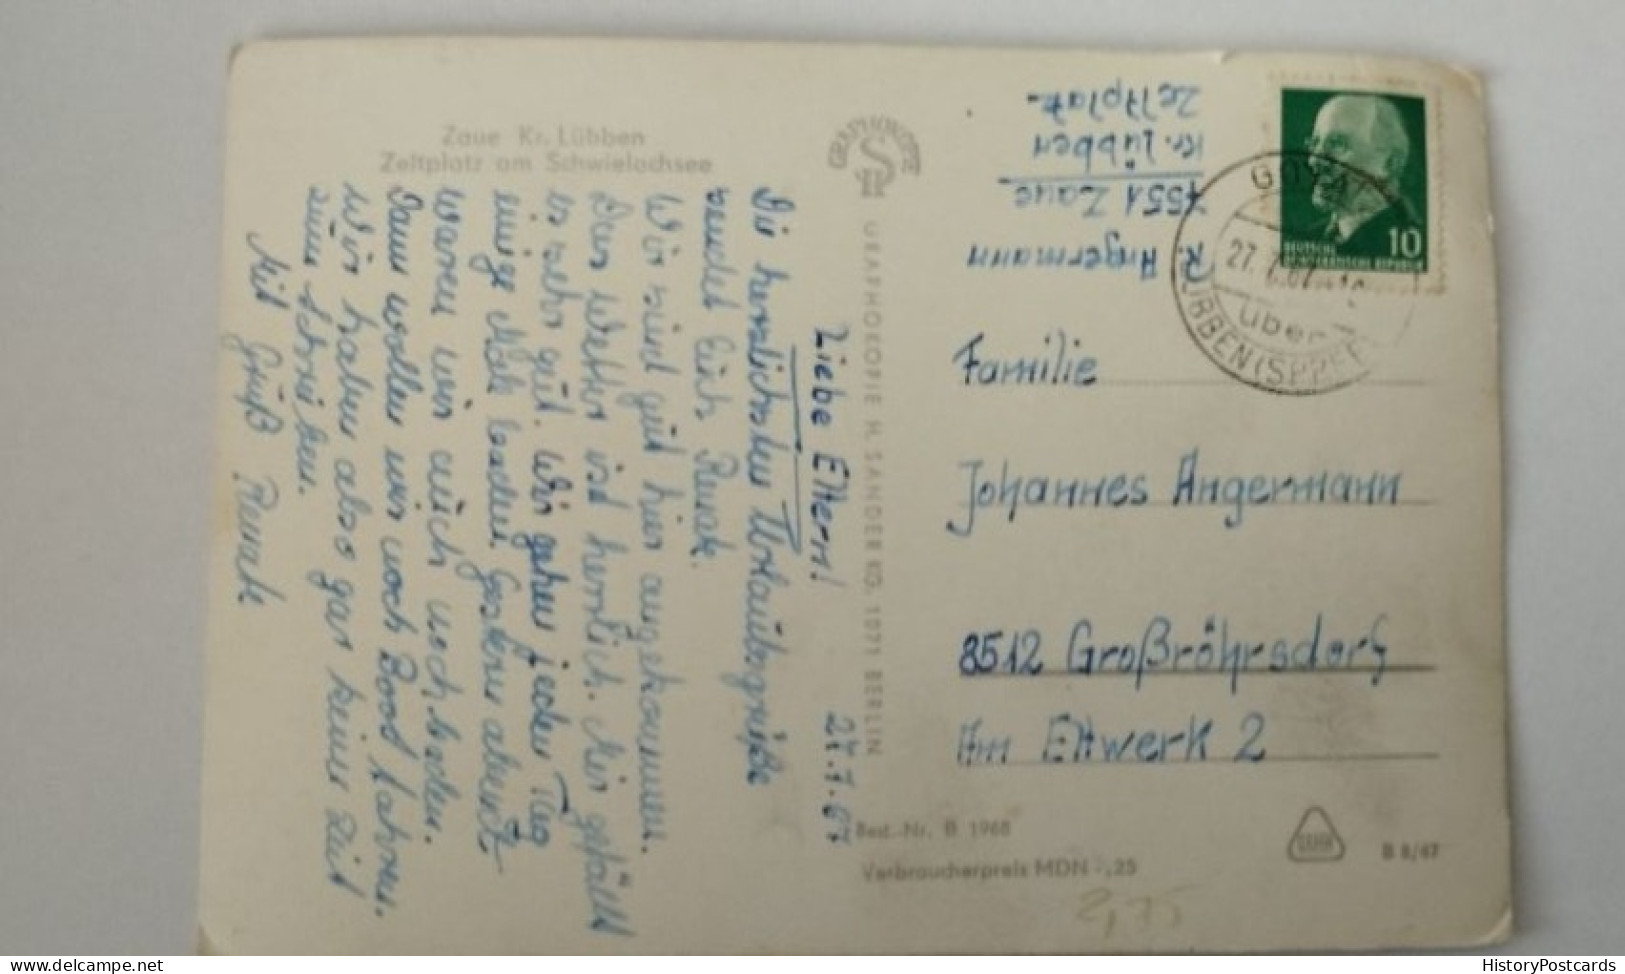 Zaue Kr. Lübben
Zeltplatz am Schwielochsee
Liebe Eltern! 27.7.67
Die herzlichsten Urlaubsgrüße
sendet Euch Renate.
Wir sind gut hier angekommen.
Das Wetter ist herrlich. Mir gefällt
es sehr gut. Wir gehen jeden Tag
einige Male baden. Gestern abend
waren wir auch noch baden.
Dann wollen wir noch Boot fahren.
Wir haben also gar keine Zeit
zum Schreiben.
Mit Gruß Renate
GRAPHOKOPIE
GRAPHOKOPIE H. SANDER KG. 1071 BERLIN
R. Angermann
7551 Zaue
Kr. Lübben
Zeltplatz
10
27.7.67
über
LÜBBEN (SPREE
Familie
Johannes Angermann
8512 Großröhrsdorf
Am Eltwerk 2
Best.-Nr. B 1968
Verbraucherpreis MDN -,25
B 8/67
2,75
HistoryPostcards